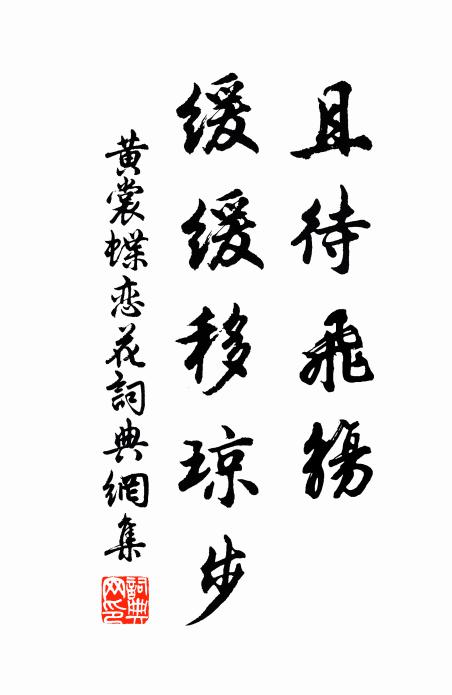 且待飛觴
緩緩移琼步
黄裳蝶恋花詞典網集
詞典网印